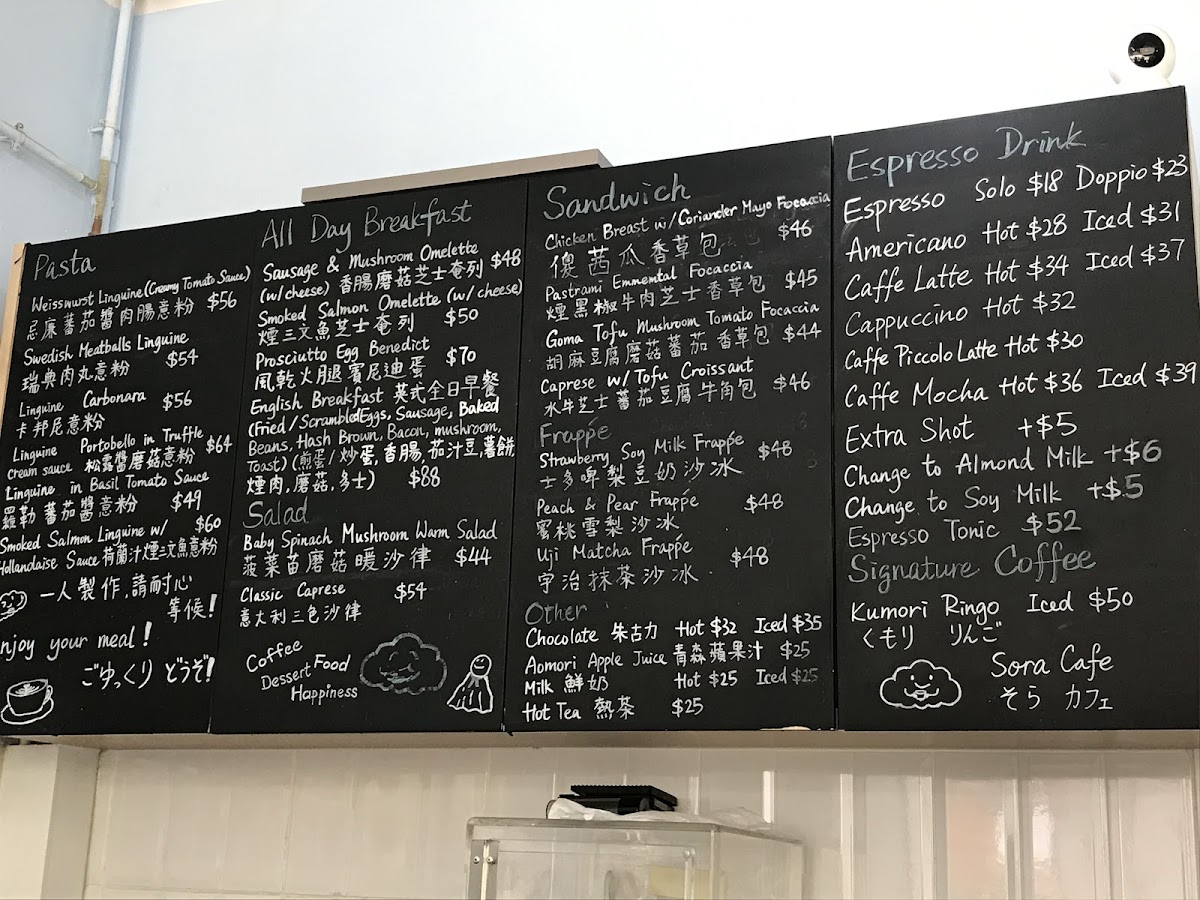 Pasta
Weisswurst Linguine (Creamy Tomato Sauce)
忌廉蕃茄醬肉腸意粉 $56
Swedish Meatballs Linguine
瑞典肉丸意粉 $54
Linguine Carbonara
卡邦尼意粉 $56
Linguine Portobello in Truffle
cream sauce 松露醬磨菇意粉 $64
Linguine in Basil Tomato Sauce
羅勒蕃茄醬意粉 $49
Smoked Salmon Linguine w/ $60
Hollandaise Sauce 荷蘭汁煙三文魚意粉
一人製作,請耐心
等候!
njoy your meal!
ごゆっくり どうぞ!
All Day Breakfast
Sausage & Mushroom Omelette
(w/cheese) 香腸磨菇芝士奄列 $48
Smoked Salmon Omelette (w/cheese)
煙三文魚芝士奄列 $50
Prosciutto Egg Benedict
風乾火腿賓尼迪蛋 $70
English Breakfast 英式全日早餐
(Fried/Scrambled Eggs, Sausage, Baked
Beans, Hash Brown, Bacon, mushroom,
Toast) (煎蛋/炒蛋,香腸,茄汁豆,薯餅
煙肉,磨菇,多士) $88
Salad
Baby Spinach Mushroom Warm Salad
菠菜苗磨菇暖沙律 $44
Classic Caprese $54
意大利三色沙律
Coffee
Dessert Food
Happiness
Sandwich
Chicken Breast w/Coriander Mayo Focaccia
傻茜瓜香草包 $46
Pastrami Emmental Focaccia
煙黑椒牛肉芝士香草包 $45
Goma Tofu Mushroom Tomato Focaccia
胡麻豆腐磨菇蕃茄香草包 $44
Caprese w/Tofu Croissant
水牛芝士蕃茄豆腐牛角包 $46
Frappée
Strawberry Soy Milk Frappée
士多啤梨豆奶沙冰 $48
Peach & Pear Frappée $48
蜜桃雪梨沙冰
Uji Matcha Frappée $48
宇治抹茶沙冰
Other
Chocolate 朱古力 Hot $32 Iced $35
Aomori Apple Juice 青森蘋果汁 $25
Milk 鮮奶 Hot $25 Iced $25
Hot Tea 熱茶 $25
Espresso Drink
Espresso Solo $18 Doppio $23
Americano Hot $28 Iced $31
Caffe Latte Hot $34 Iced $37
Cappuccino Hot $32
Caffe Piccolo Latte Hot $30
Caffe Mocha Hot $36 Iced $39
Extra Shot +$5
Change to Almond Milk +$6
Change to Soy Milk +$5
Espresso Tonic $52
Signature Coffee
Kumori Ringo Iced $50
くもり りんご
Sora Cafe
そら カフェ